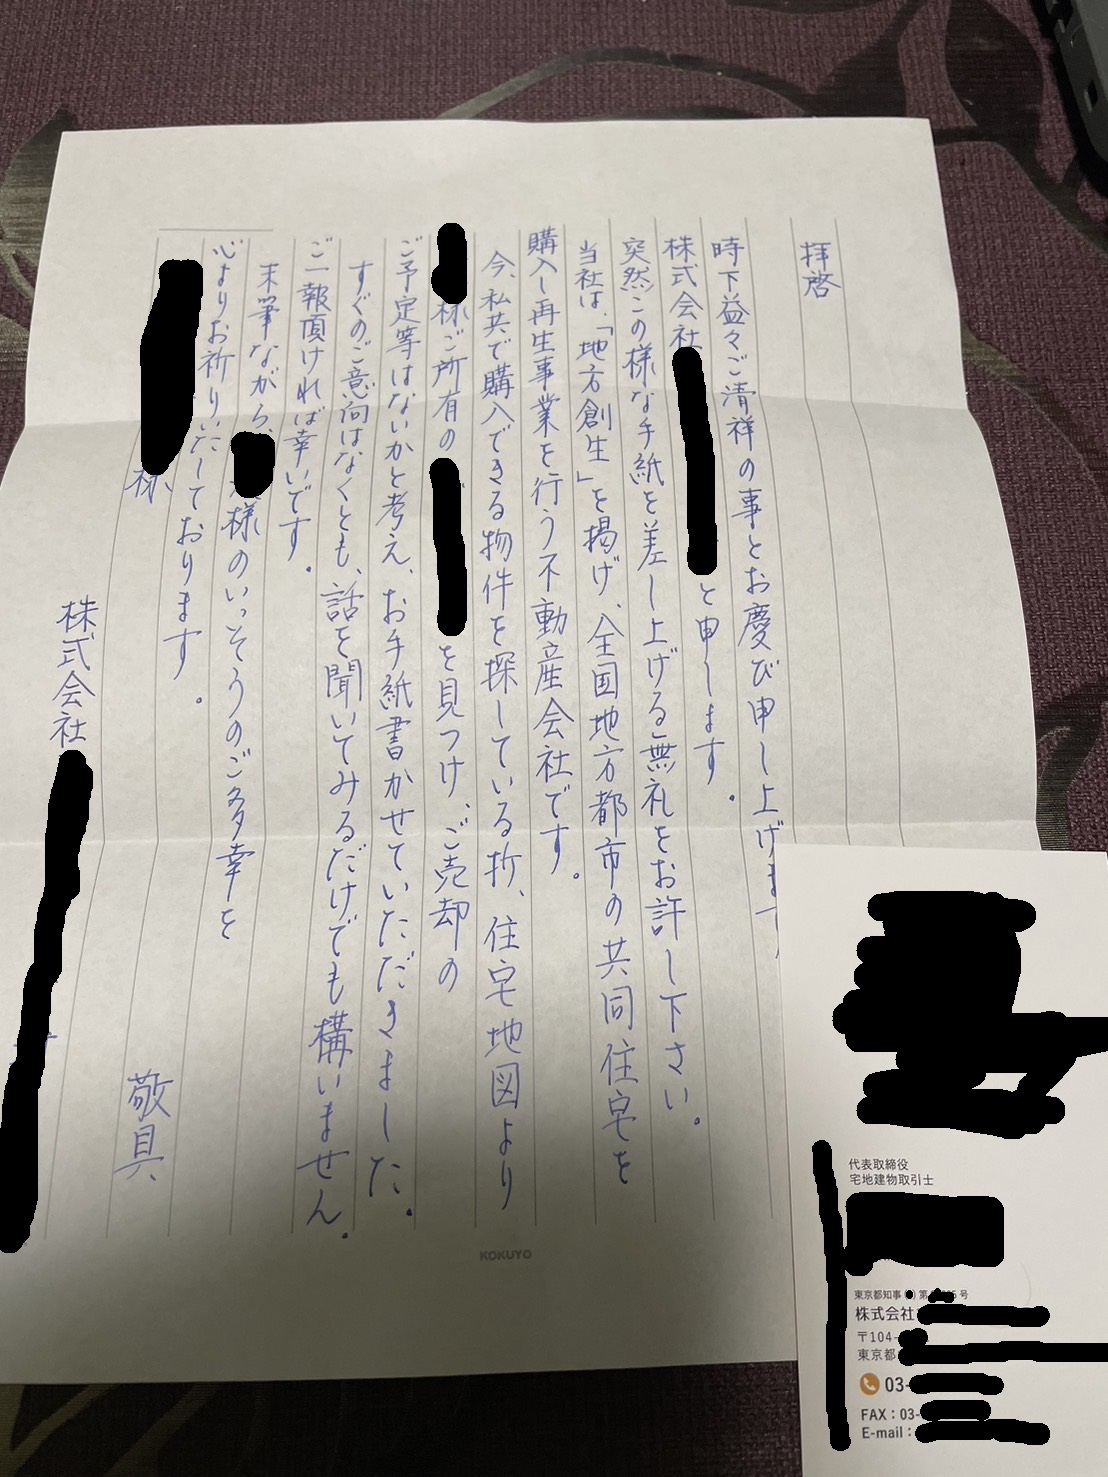 拝啓
時下益々ご清祥の事とお慶び申し上げます
株式会社
と申します。
突然この様な手紙を差し上げる無礼をお許し下さい。
当社は、「地方創生」を掲げ、全国地方都市の共同住宅を
購入し再生事業を行う不動産会社です。
今、私共で購入できる物件を探している折、住宅地図より
様ご所有の
を見つけ、ご売却の
ご予定等はないかと考え、お手紙書かせていただきました。
すぐのご意向はなくとも、話を聞いてみるだけでも構いません。
ご一報頂ければ幸いです。
末筆ながら、
様のいっそうのご多幸を
心よりお祈りいたしております。
敬具
様
株式会社
KOKUYO
代表取締役
宅地建物取引士
東京都知事
第
号
株式会社
〒104-
東京都
03-
FAX：03-
E-mail：